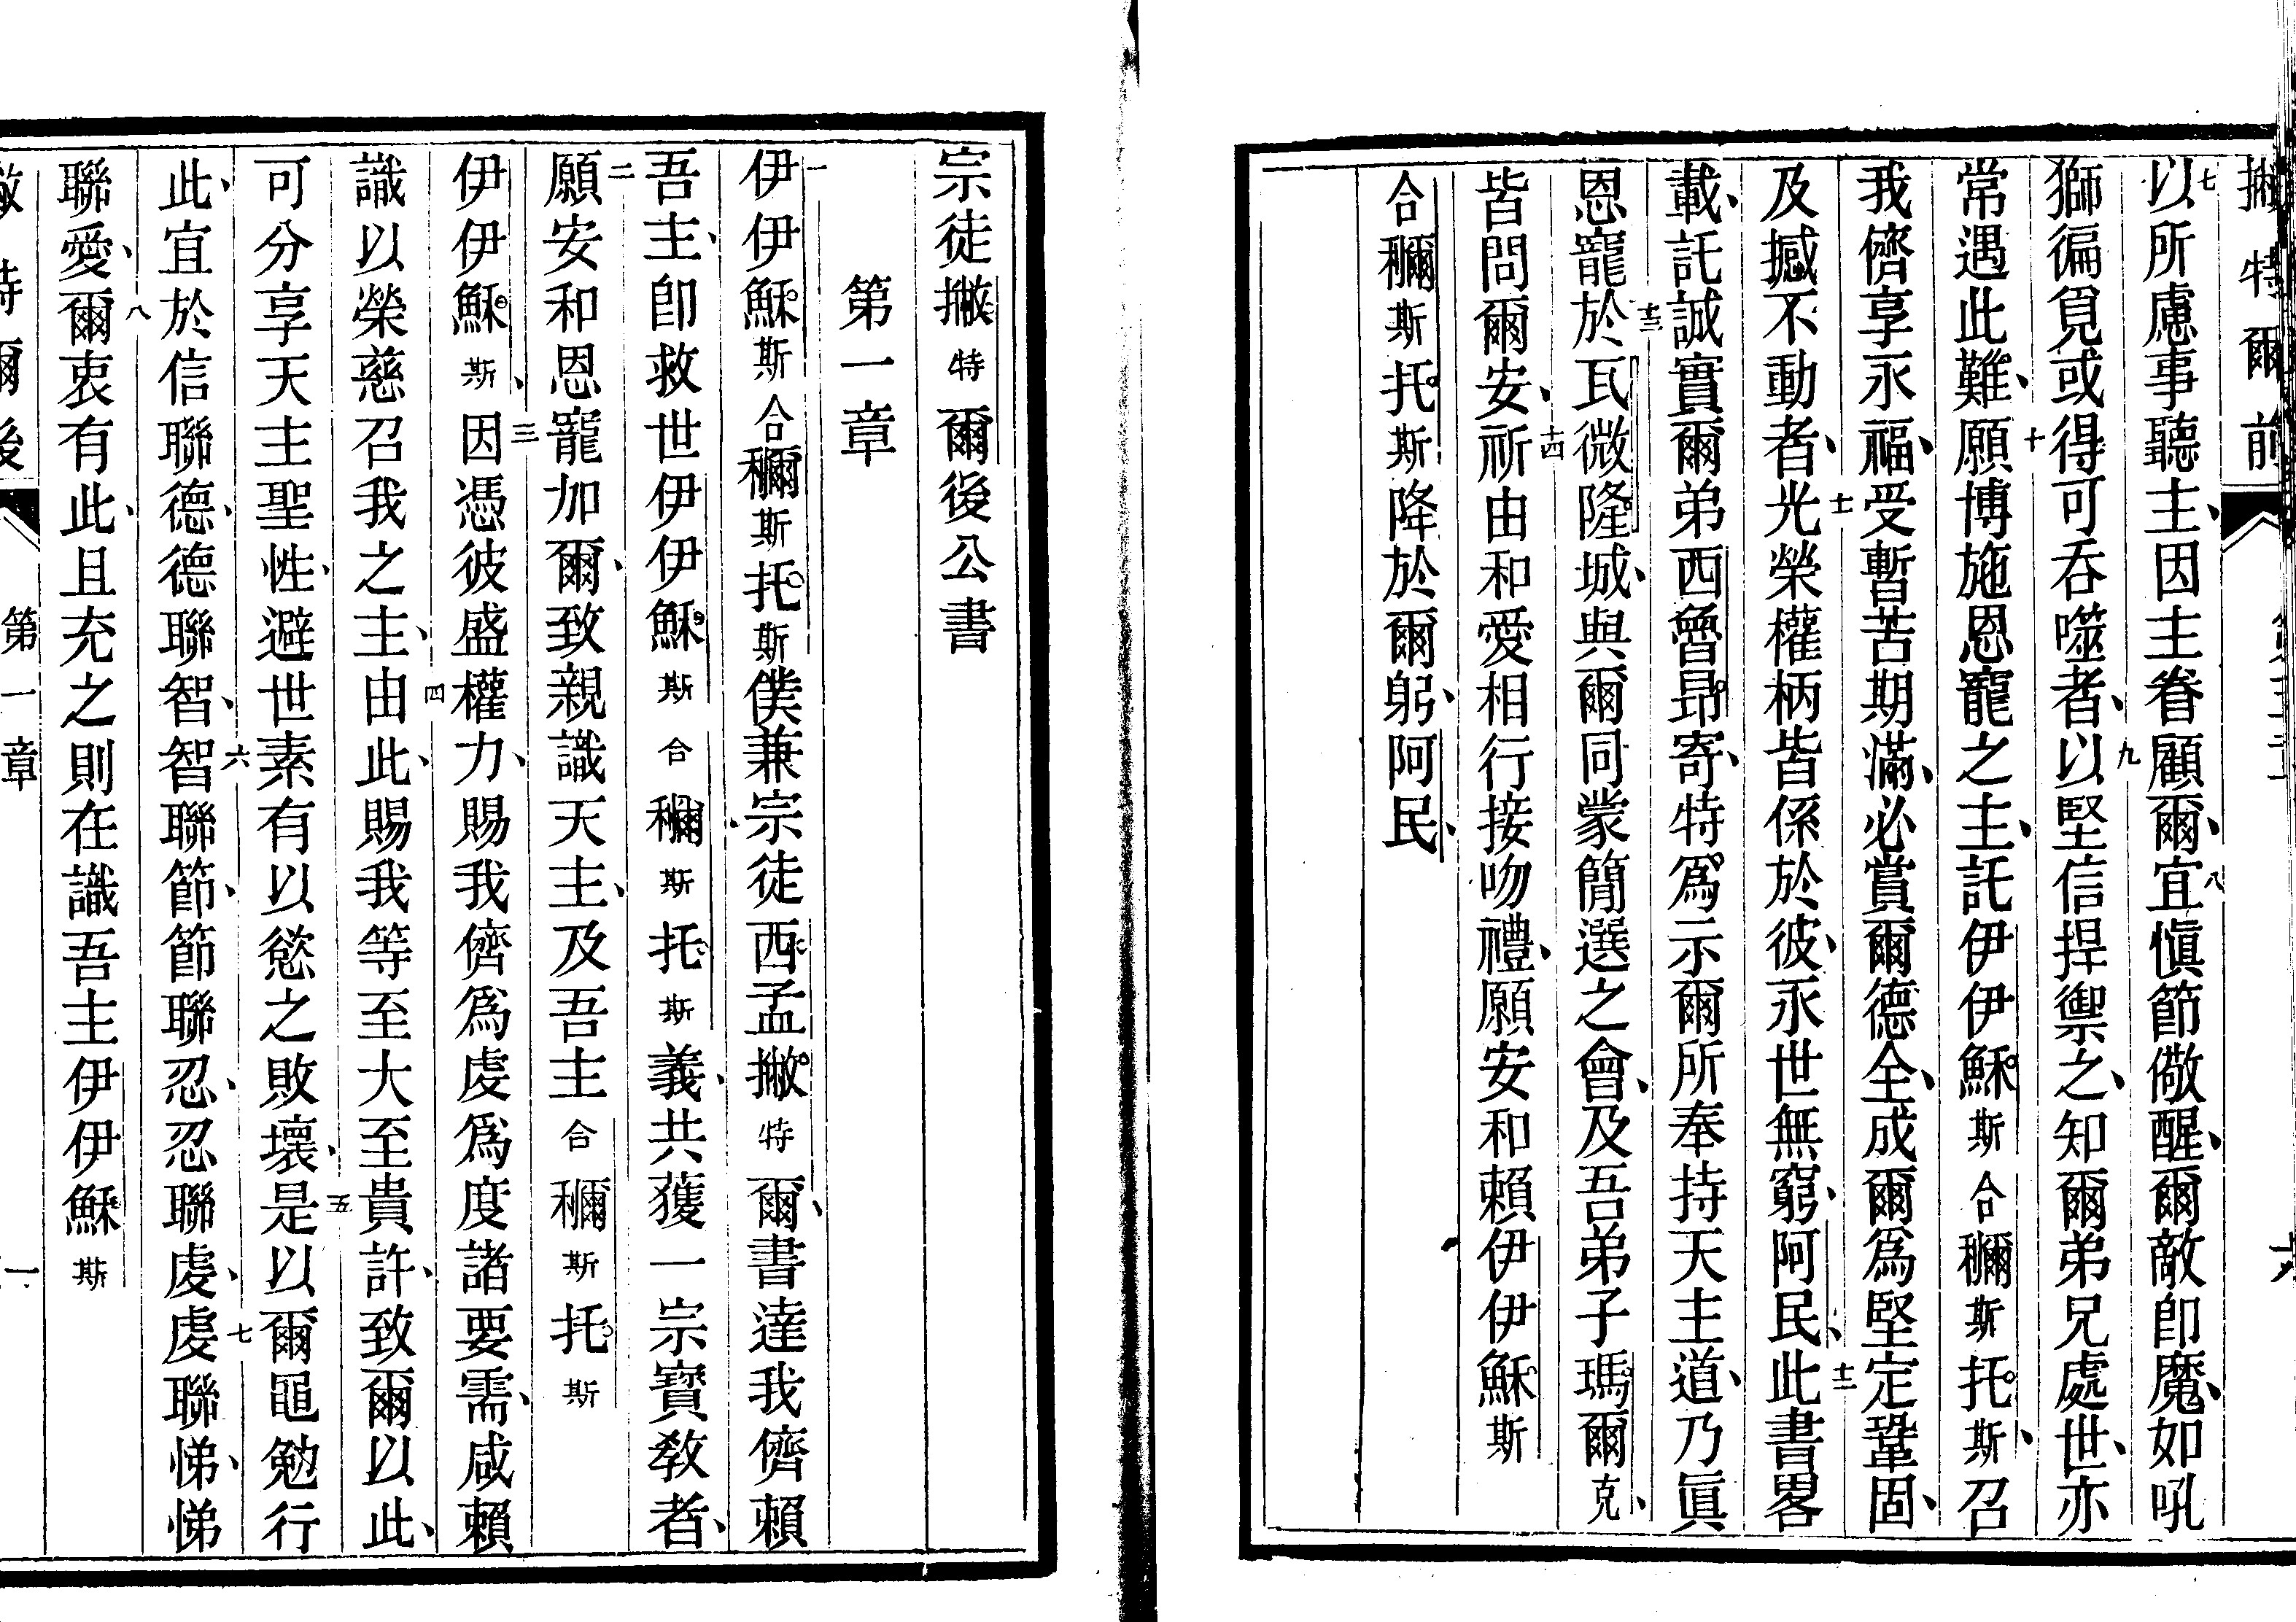 撇特爾前
七以所慮事聽主、因主眷顧爾、八宜愼節儆醒、爾敵卽魔、如吼
獅徧覓或得可吞噬者、九以堅信捍禦之、知爾弟兄處世、亦
常遇此難、十願博施恩寵之主、託伊伊穌斯合穪斯托斯、召
我儕享永福、受暫苦期滿、必賞爾德全、成爾爲堅定鞏固、
及撼不動者、十一光榮權柄皆係於彼、永世無窮、阿民、十二此書畧
載、託誠實爾弟西曾昻寄、特爲示爾所奉持天主道、乃眞
恩寵、十三於瓦微隆城、與爾同蒙簡選之會、及吾弟子瑪爾克、
皆問爾安、十四祈由和愛相行接吻禮、願安和賴伊伊穌斯
合穪斯托斯降於爾躬、阿民、
宗徒撇特爾後公書
第一章
一伊伊穌斯合穪斯托斯僕兼宗徒西孟撇特爾、書達我儕賴
吾主、卽救世伊伊穌斯合穪斯托斯義、共獲一宗寶敎者、
二願安和恩寵加爾、致親識天主、及吾主合穪斯托斯
伊伊穌斯、三因憑彼盛權力、賜我儕爲虔爲度諸要需、咸賴
識以榮慈召我之主、四由此、賜我等至大至貴許、致爾以此、
可分享天主聖性、避世素有以慾之敗壞、五是以爾黽勉行
此、宜於信聯德、德聯智、六智聯節、節聯忍、忍聯虔、七虔聯悌、悌
聯愛、八爾衷有此、且充之則在識吾主伊伊穌斯
特爾後
第一章
一